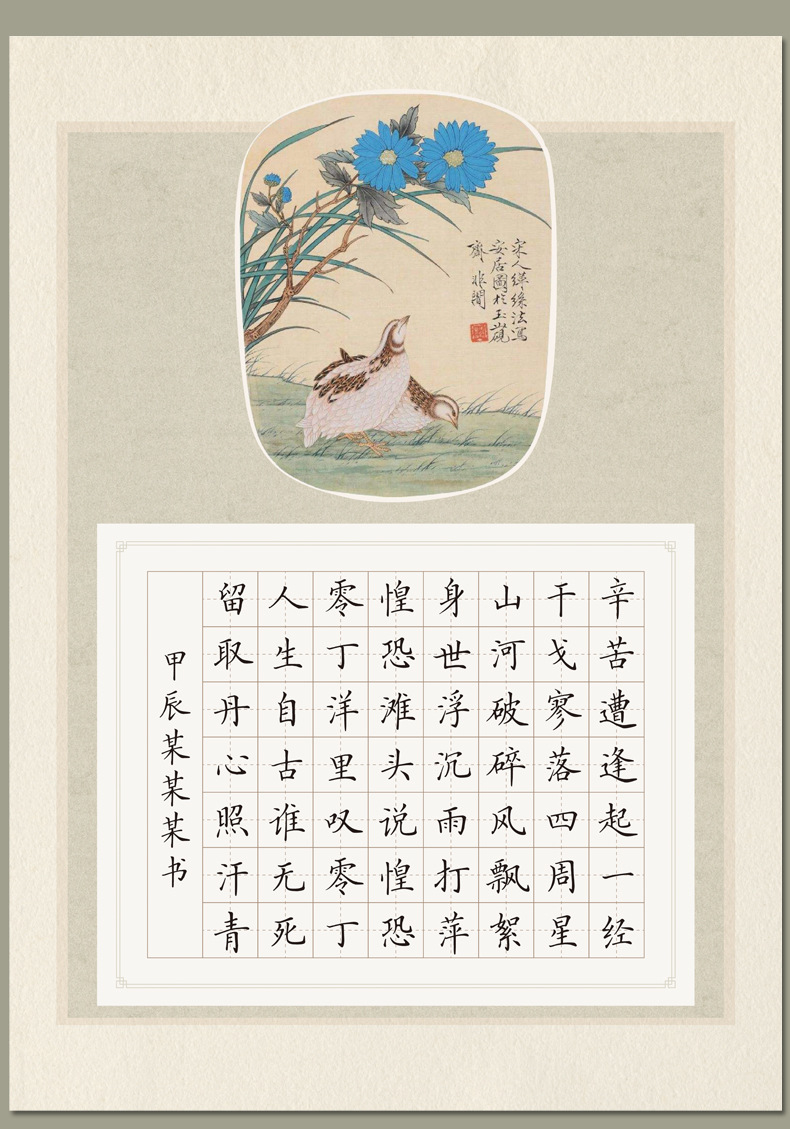 宋人緙絲法寫
安居圖於玉山硯
齋 非闇
辛苦遭逢起一经
干戈寥落四周星
山河破碎风飘絮
身世浮沉雨打萍
惶恐滩头说惶恐
零丁洋里叹零丁
人生自古谁无死
留取丹心照汗青
甲辰某某某书